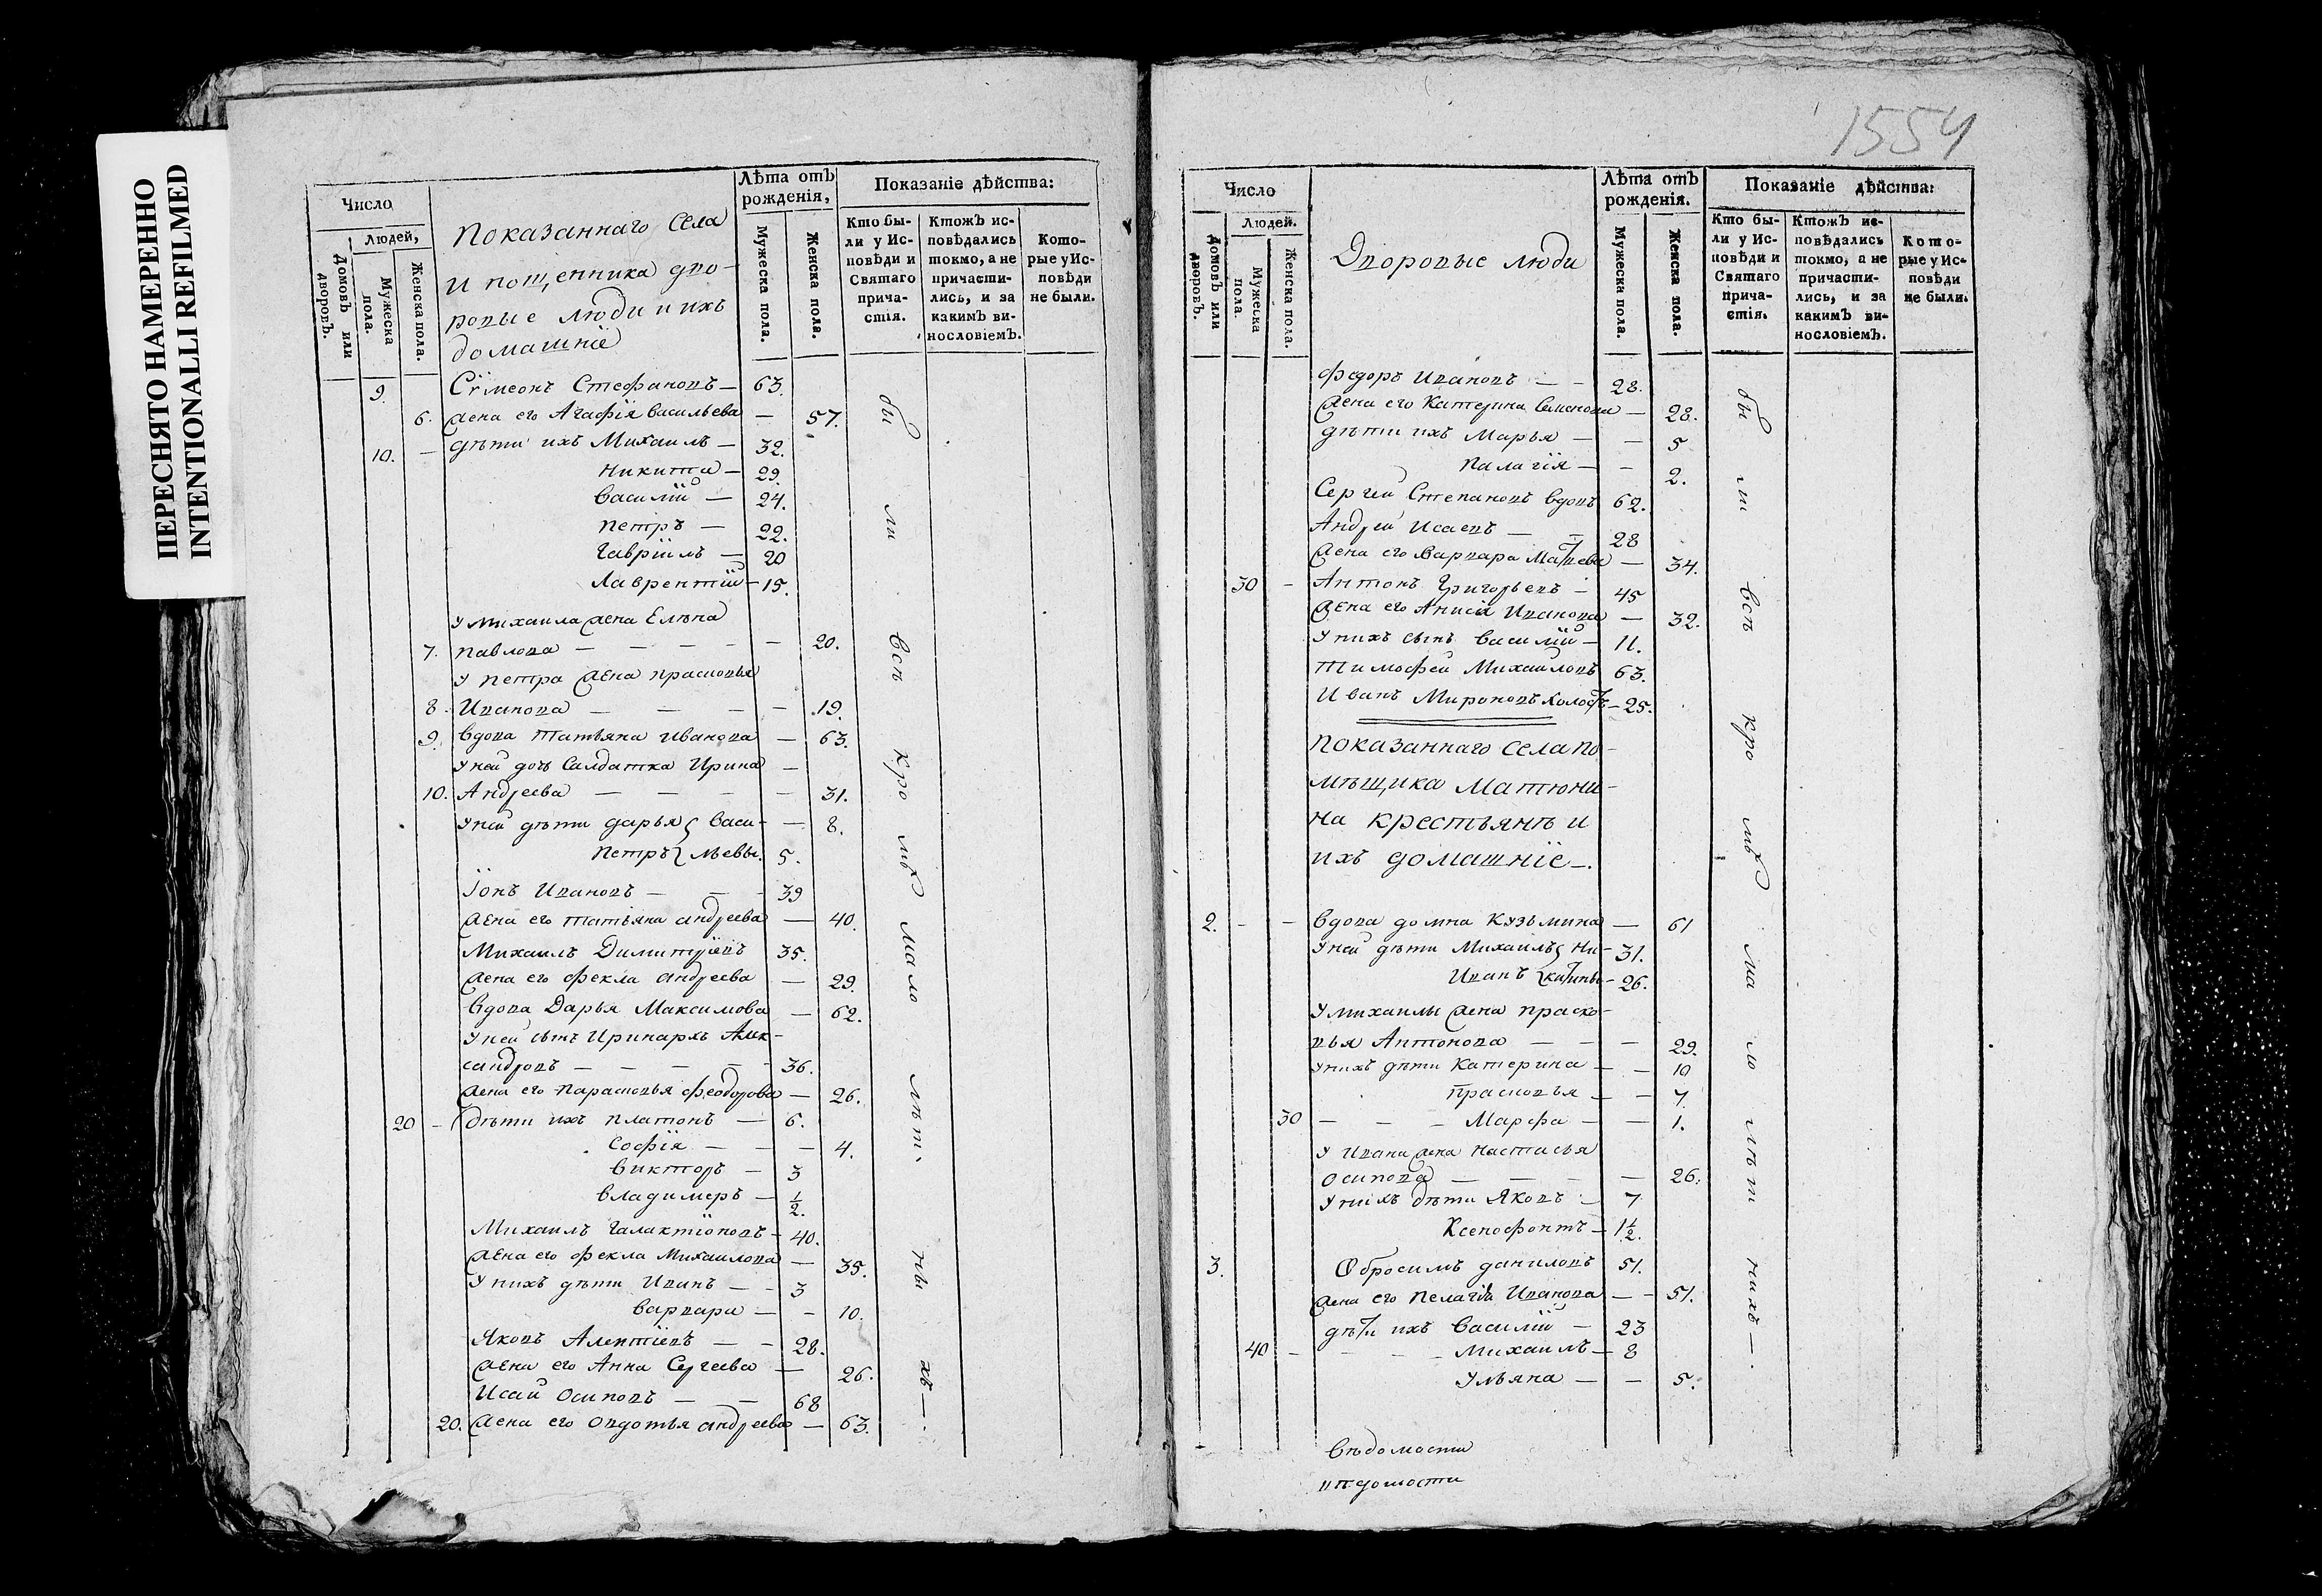 ПЕРЕСНЯТО НАМЕРЕННО
INTENTIONALLI REFILMED
Число
Людей,
Домовъ или дворовъ.
Мужеска пола.
Женска пола.
Показаннаго Села
и помѣщика дво-
ровые люди и ихъ
домашніе
Лѣта отъ рожденія,
Мужеска пола.
Женска пола.
Показаніе дѣйства:
Кто бы-ли у Ис-повѣди и Святаго прича-стія.
Ктожъ ис-повѣдались токмо, а не причасти-лись, и за какимъ ви-нословіемъ.
Кото-рые у Ис-повѣди не были.
9. Сѵмеонъ Стефановъ — 63.
6. жена его Агафія Васильева — 57.
10. — дѣти ихъ Михаилъ — 32.
Никита — 29.
Василій — 24.
Петръ — 22.
Гавріилъ — 20
Лаврентій — 15.
у Михаила жена Елѣна
7. Павлова — — — — — 20.
у Петра жена Прасковья
8. Иванова — — — — 19.
9. Вдова Татьяна Иванова — 63.
у ней дочь Салдатка Ирина —
10. Андреева — — — — 31.
у ней дѣти Дарья Васи- — 8.
Петръ льевы. 5.
Іонъ Ивановъ — — — 39
жена его Татьяна Андреева — 40.
Михаилъ Димитріевъ 35.
жена его Фекла Андреева — 29.
Вдова Дарья Максимова — 62.
у ней сынъ Иринархъ Алек-
сандровъ — — — — — 36.
жена его Парасковья Феодорова — 26.
20 — дѣти ихъ Платонъ — 6.
Софія — — — 4.
Викторъ — 3
Владимеръ — 1/2.
Михаилъ Галактіоновъ — 40.
жена его Фекла Михаилова — 35.
у нихъ дѣти Иванъ — — 3
Варвара — — 10.
Яковъ Алентіевъ — — 28.
жена его Анна Сергеева — 26.
Исай Осиповъ — — 68
20. жена его Овдотья Андреева — 63.
бы ли всѣ кро мѣ мало лѣт ны хъ — .
1554
Число
Людей.
Домовъ или дворовъ.
Мужеска пола.
Женска пола.
Дворовые люди
Лѣта отъ рожденія.
Мужеска пола.
Женска пола.
Показаніе дѣйства:
Кто бы-ли у Ис-повѣди и Святаго прича-стія.
Ктожъ ис-повѣдались токмо, а не причасти-лись, и за какимъ ви-нословіемъ.
Кото-рые у Ис-повѣди не были.
Федоръ Ивановъ — — 28.
жена его Катерина Семенова — 28.
дѣти ихъ Марья — — 5
Палагія — — 2.
Сергей Степановъ вдовъ 62.
Андрей Исаевъ — — 28
жена его Варвара Матвева — 34.
30 — Антонъ Григорьевъ — 45
жена его Анисія Иванова — 32.
у нихъ сынъ Василій — 11.
Тимофей Михаиловъ 63.
Иванъ Мироновъ холостъ — 25.
Показаннаго Села по-
мѣщика Матюни-
на крестьянѣ и
ихъ домашніе — .
2. — — Вдова Домна Кузьмина — 61
у ней дѣти Михаилъ Ни- — 31.
Иванъ китины — 26.
у Михаилы жена Праско-
вья Антонова — — — 29.
у нихъ дѣти Катерина — — 10
Прасковья — — 7
30 — — — Марфа — — 1.
у Ивана жена Настасья
Осипова — — — — 26.
у нихъ дѣти Яковъ — 7
Ксенофонтъ — 1 1/2.
3. Обросимъ Даниловъ 51.
жена его Пелагія Иванова — — 51.
дѣти ихъ Василій — 23
40 — — — Михаилъ — 8
Ульяна — — 5.
бы ли всѣ кро мѣ ма ло лѣт нихъ — .
Вѣдомости
вѣдомости